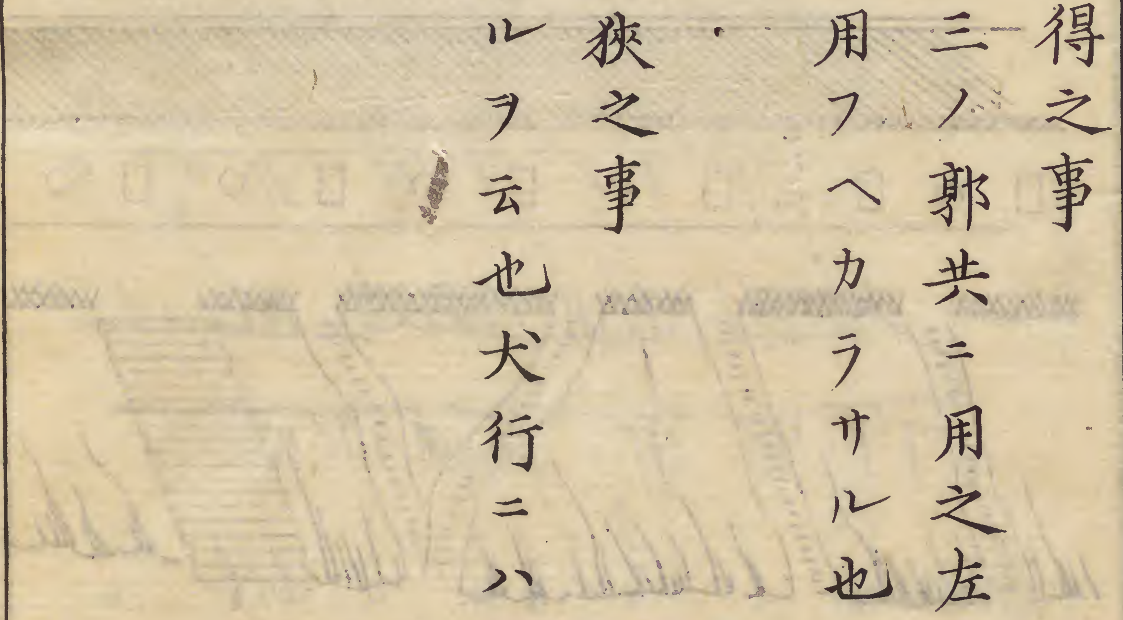 得之事
三ノ郭共ニ用之左
用フヘカラサル也
狹之事
ルヲ云也犬行ニハ